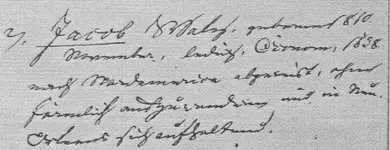 2, Jacob &Wals/, geboren 1810.
November, ledig, Öconom, 1838
nach Nordamerica abgereist, ohne
förmlich auszuwandern und in Neu-
Orleans sich aufhaltend.